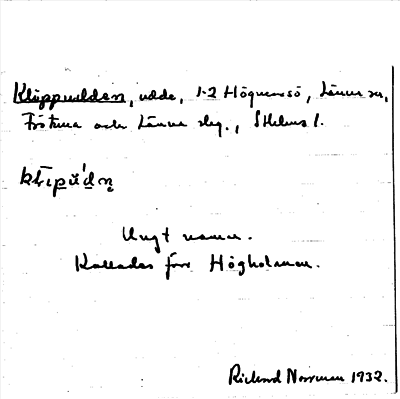 Klippudden, udde, 1-2 Högmarsö, Länna sn,
Frötuna och Länna slg., Sthlms l.
Ungt namn.
Kallades förr Högholmen.
Rickard Norrman 1932.